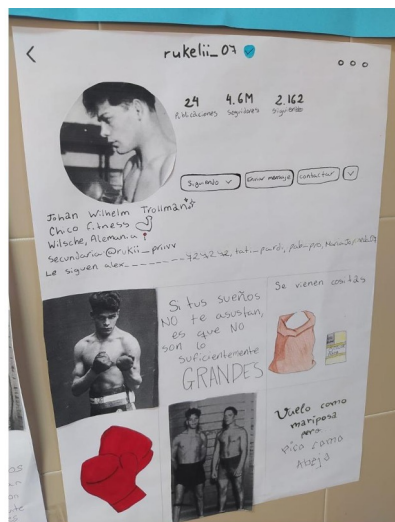 rukelii_07
24 4.6M 2.162
Publicaciones Seguidores Siguiendo
Siguiendo Enviar mensaje Contactar
Johan Wilhelm Trollman
Chico fitness
Wilsche, Alemania
secundaria @rukii_privv
Le siguen alex_
Si tus sueños
NO te asustan,
es que NO
son lo
suficientemente
GRANDES
Se vienen cositas
Vuelo como
mariposa
pero
pico como
abeja